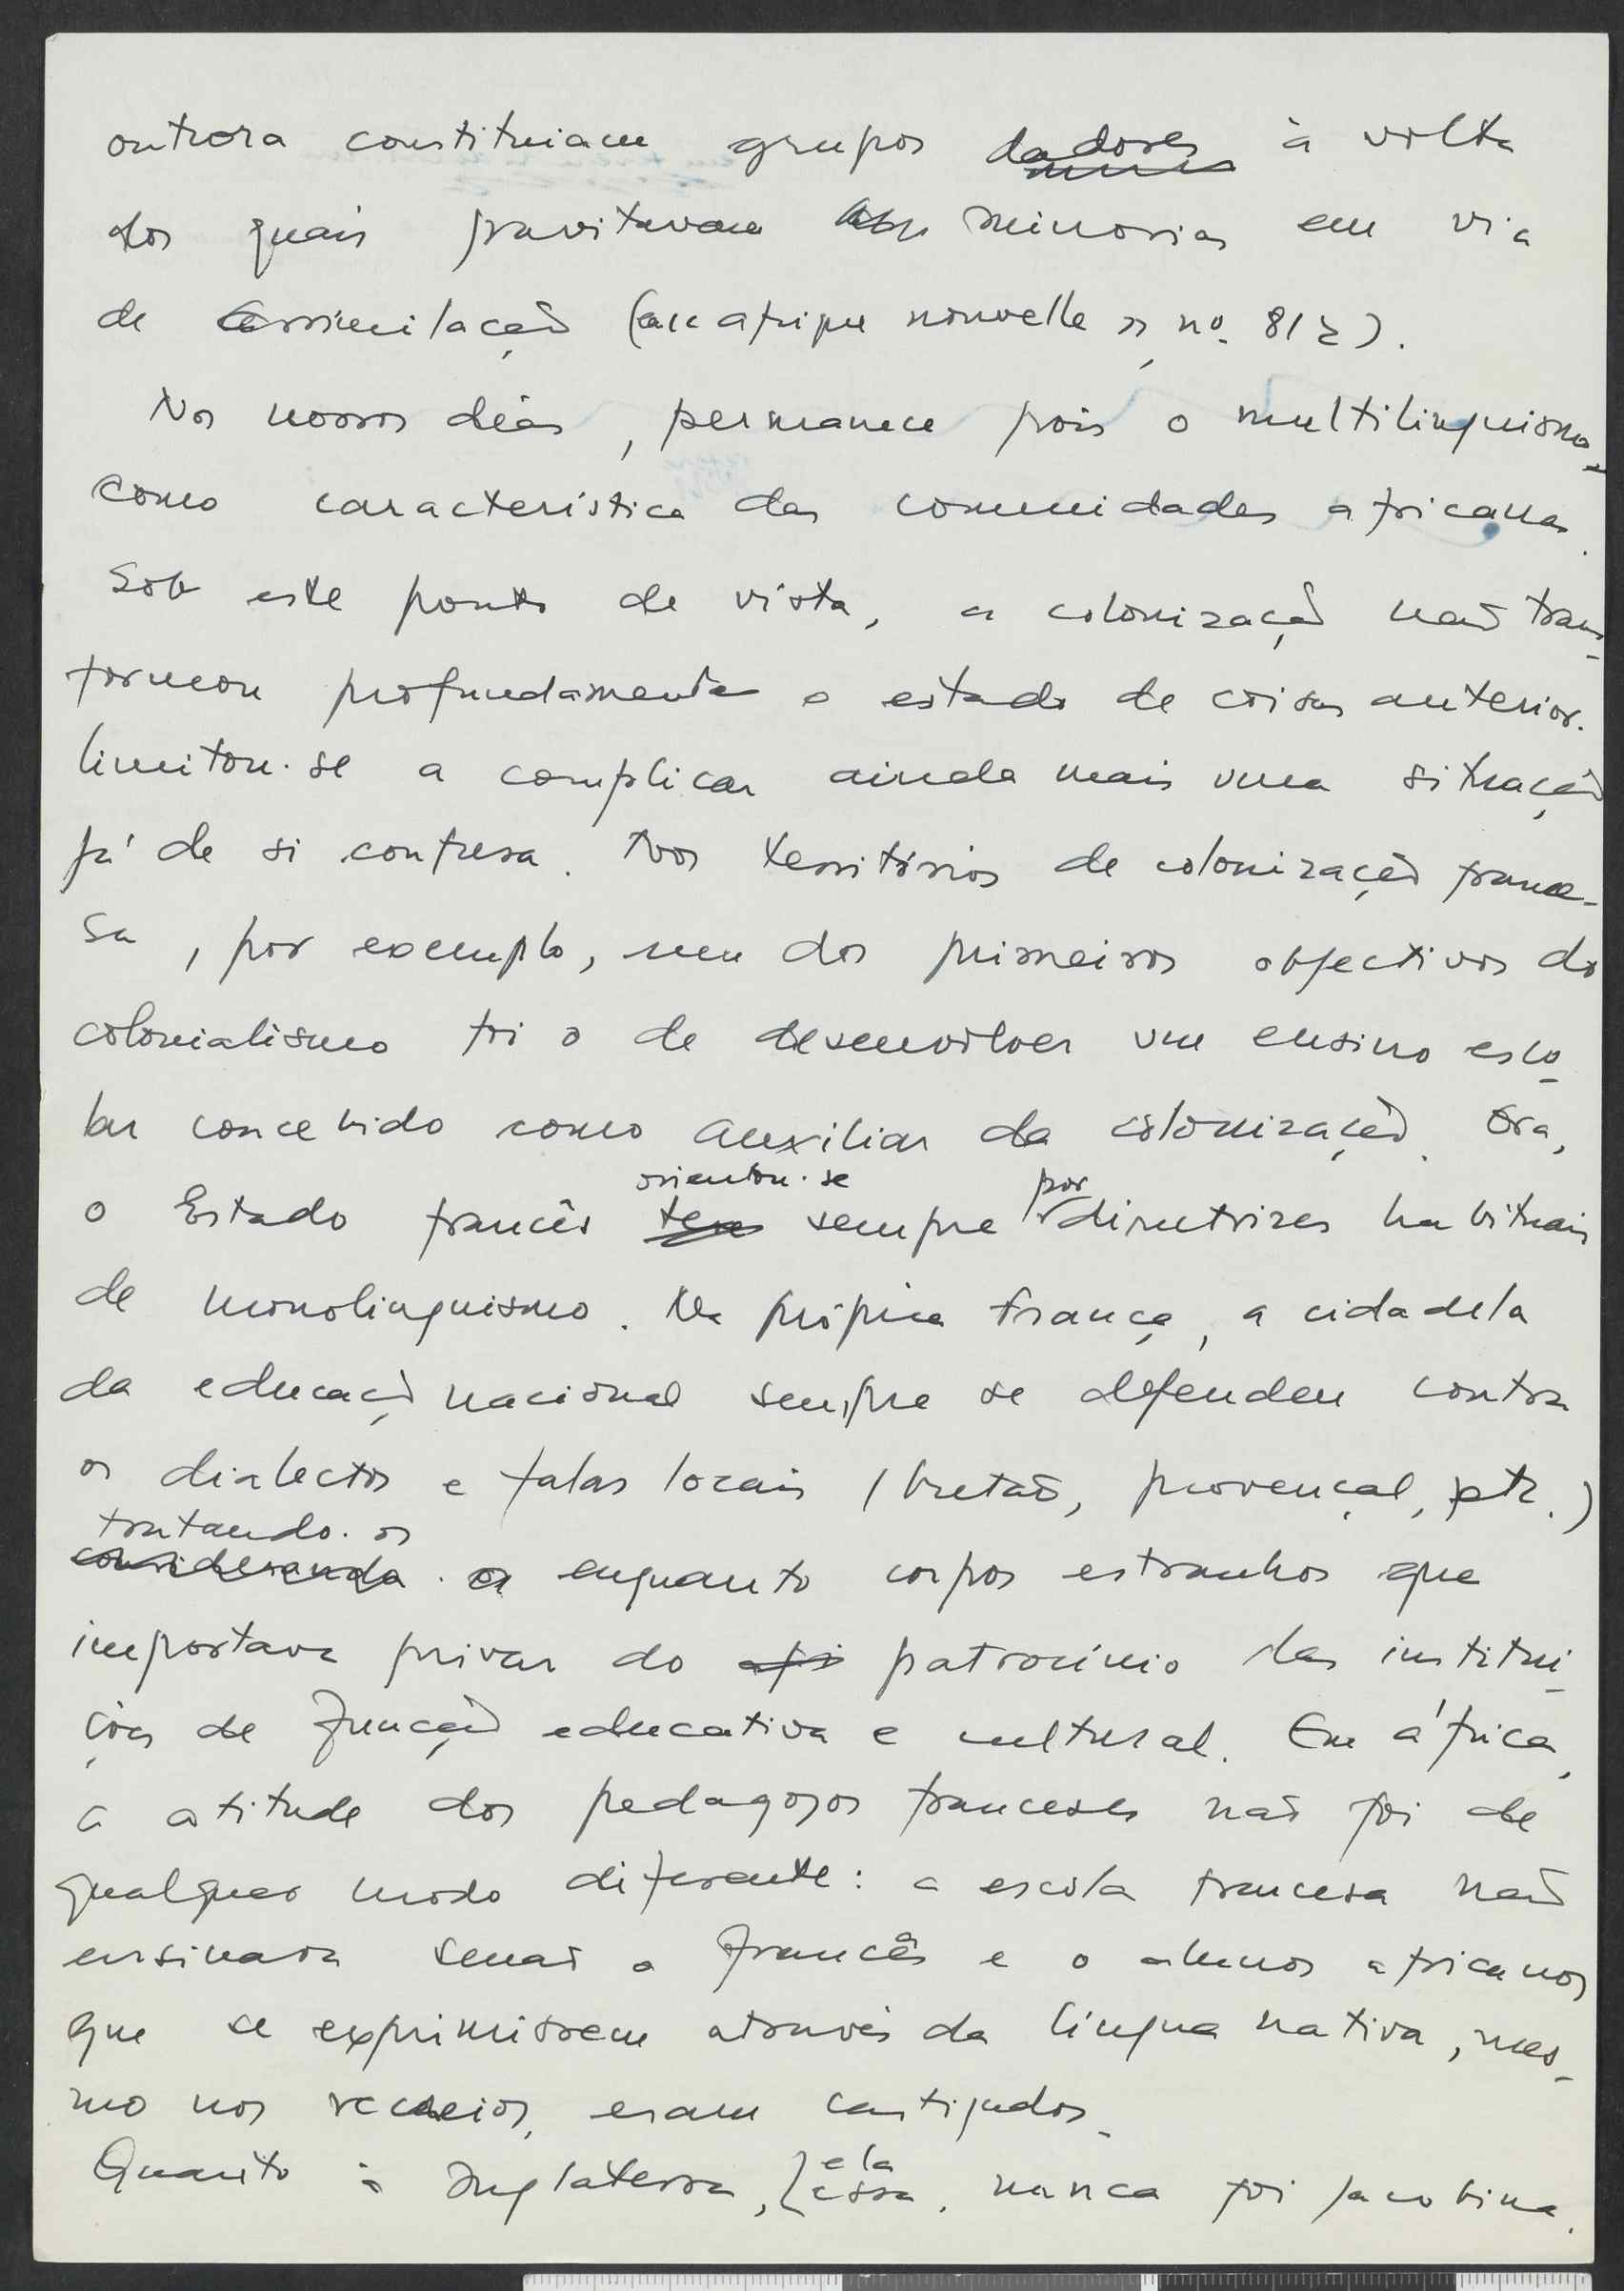 outrora constituiam grupos dadores à volta
dos quais gravitavam minorias em via
de assimilação («afrique nouvelle», nº 812).
Nos nossos dias, permanece pois o multilinguismo
como característica das comunidades africanas.
Sob este ponto de vista, a colonização não trans-
formou profundamente o estado de coisas anterior.
limitou-se a complicar ainda mais uma situação
já de si confusa. Nos territórios de colonização france-
sa, por exemplo, um dos primeiros objectivos do
colonialismo foi o de desenvolver um ensino esco-
lar concebido como auxiliar da colonização. Ora,
orientou-se por
o Estado francês sempre directrizes habituais
de monolinguismo. Na própria França, a cidadela
da educação nacional sempre se defendeu contra
os dialectos e falas locais (bretão, provençal, etc.)
tratando-os
considerando-os enquanto corpos estranhos que
importava privar do patrocínio das institui-
ções de função educativa e cultural. Em África,
a atitude dos pedagogos franceses não foi de
qualquer modo diferente: a escola francesa não
ensinava senão o francês e o alunos africanos
que se exprimissem através da língua nativa, mes-
mo nos recreios, eram castigados.
ela
Quanto à Inglaterra, essa, nunca foi jacobina.